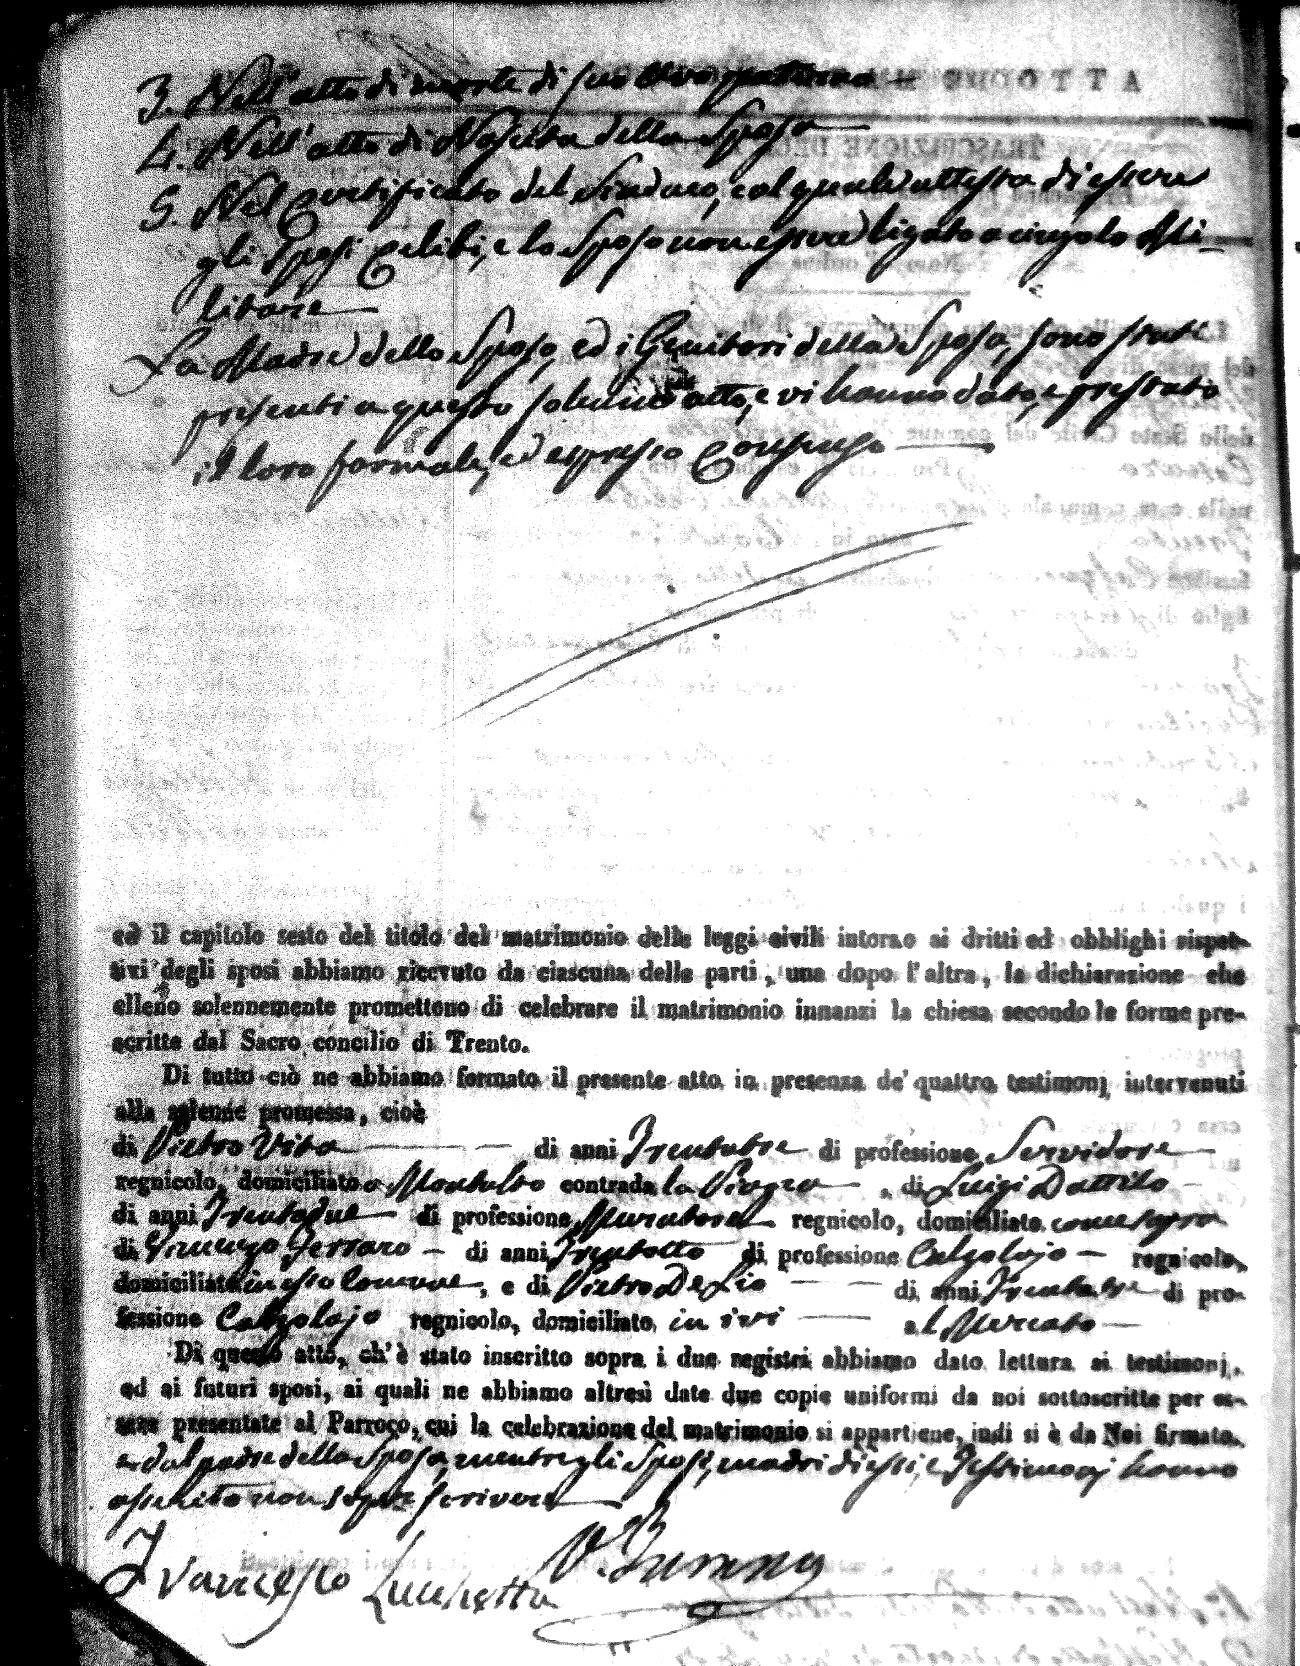 3. Nell'atto di morte di suo Avo paterno —
4. Nell'atto di Nascita della Sposa —
5. Nel Certificato del Sindaco, col quale attesta di essere
gli Sposi Celibi, e lo Sposo non essere ligato a cingolo Mi-
litare —
La Madre dello Sposo, ed i Genitori della Sposa, sono stati
presenti a questo solenne atto, e vi hanno dato, e prestato
il loro formale, ed espresso Consenso —
ed il capitolo sesto del titolo del matrimonio delle leggi civili intorno ai dritti ed obblighi rispet-
tivi degli sposi abbiamo ricevuto da ciascuna delle parti, una dopo l'altra, la dichiarazione che
elleno solennemente promettono di celebrare il matrimonio innanzi la chiesa secondo le forme pre-
scritte dal Sacro concilio di Trento.
Di tutto ciò ne abbiamo formato il presente atto in presenza de' quattro testimonj intervenuti
alla solenne promessa, cioè
di Pietro Vita — di anni Trentatre di professione Servidore —
regnicolo, domiciliato a Montalto contrada la , di Luigi Dattilo —
di anni Trentadue — di professione Muratore regnicolo, domiciliato come sopra
di Vincenzo Ferraro — di anni Trentotto di professione Calzolajo — regnicolo,
domiciliato in esso Comune, e di Pietro De Lio — di anni Trentatre di pro-
fessione Calzolajo regnicolo, domiciliato in ivi — al Mercato —
Di questo atto, ch'è stato inscritto sopra i due registri abbiamo dato lettura ai testimonj,
ed ai futuri sposi, ai quali ne abbiamo altresì date due copie uniformi da noi sottoscritte per es-
sere presentate al Parroco, cui la celebrazione del matrimonio si appartiene, indi si è da Noi firmato.
e dal padre della Sposa, mentre gli Sposi, madri di essi, e Testimonj hanno
asserito non saper scrivere —
Francesco Lucchetta